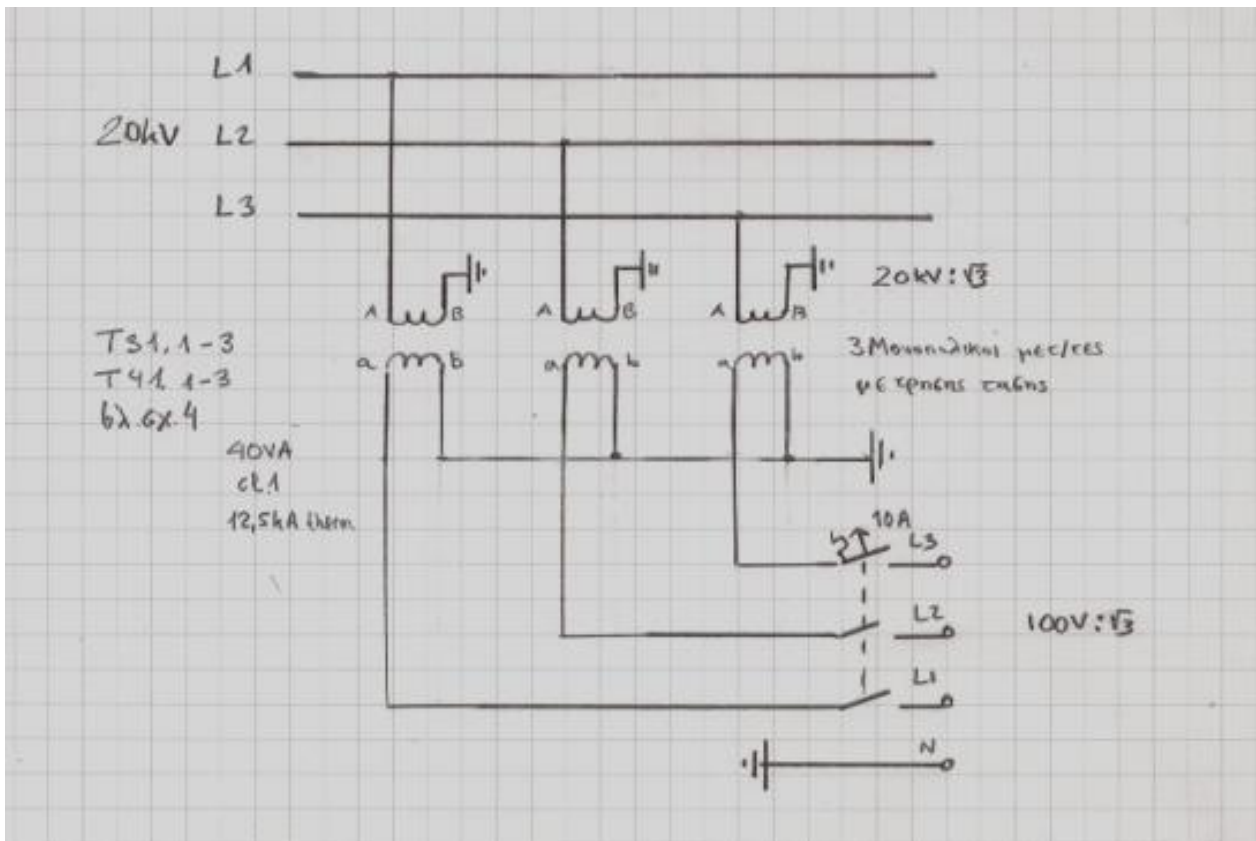 L1
20kV L2
L3
20kV:√3
A B A B A B
TS1.1-3
T41.1-3
βλ.σχ.4
a b a b a b
3 Μονοπολικοί μετ/τες
μετρησης τασης
40VA
cl.1
12,5kA therm
10A
L3
L2
100V:√3
L1
N